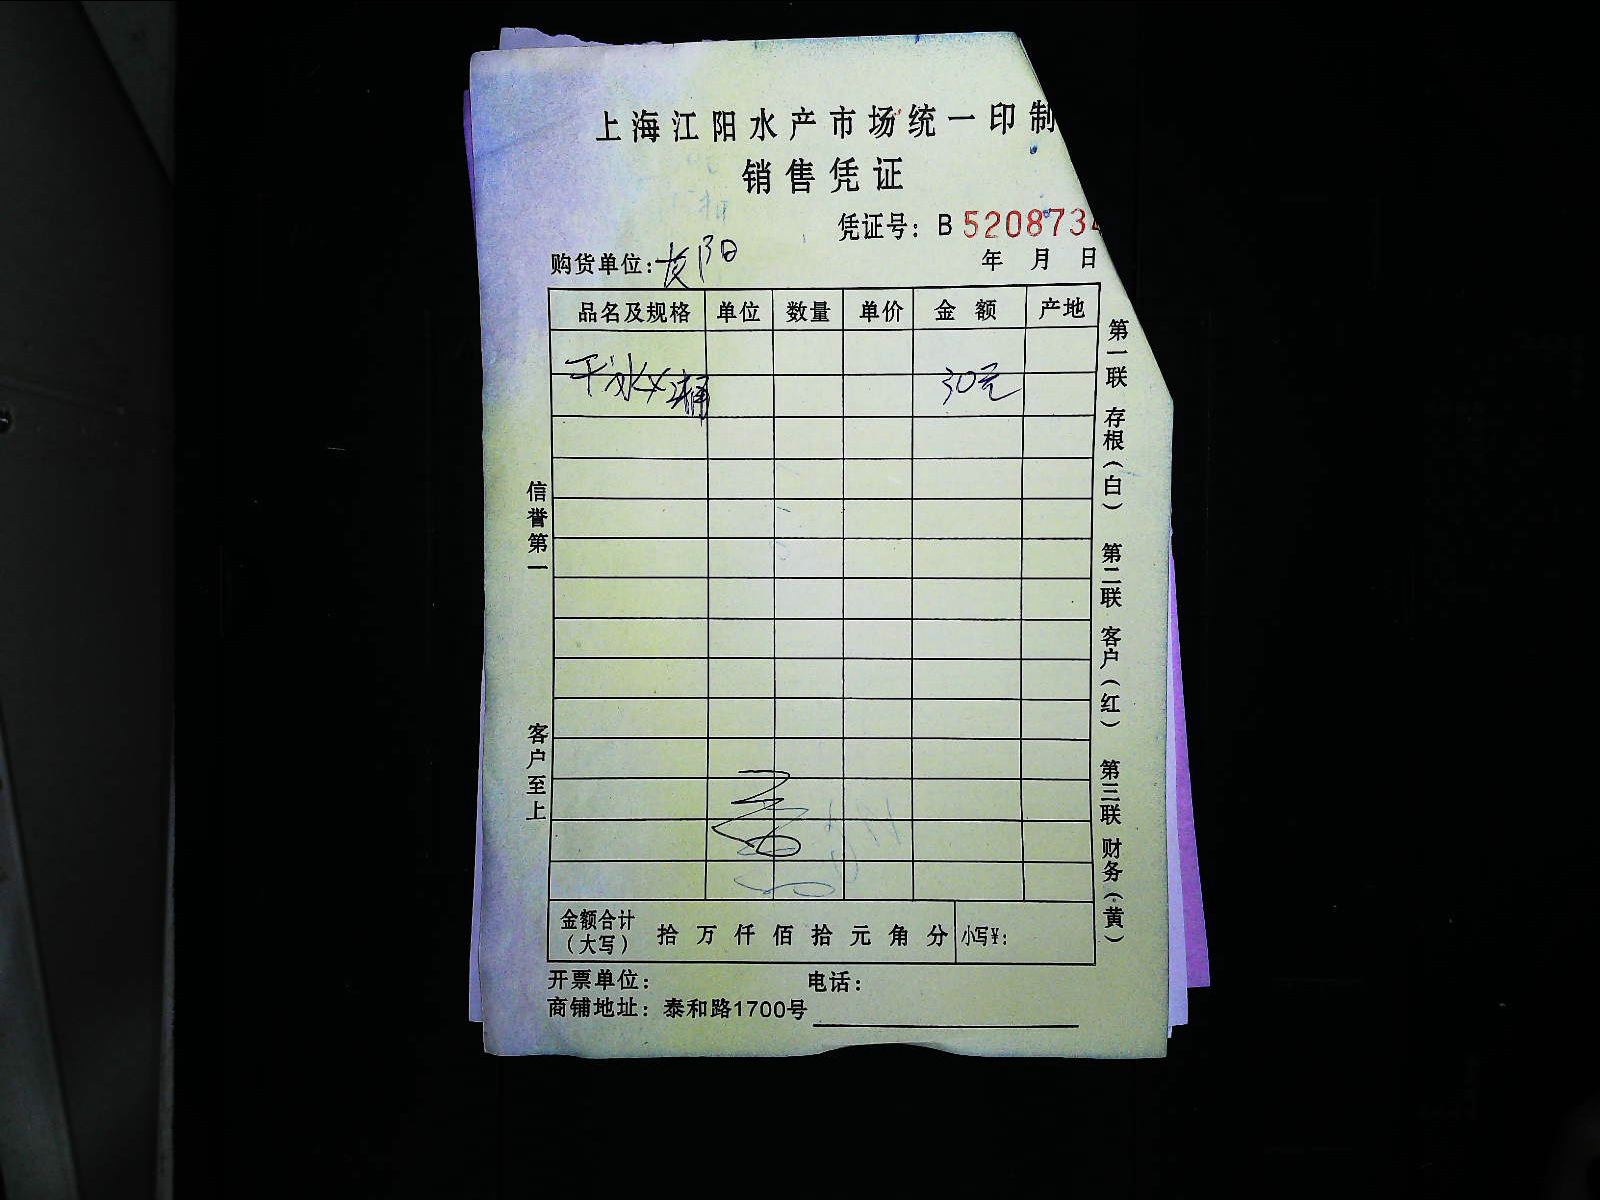 上海江阳水产市场统一印制
销售凭证
凭证号：B 520873
购货单位： 年 月 日
品名及规格 单位 数量 单价 金额 产地
干冰 30元
信誉第一
客户至上
第一联 存根（白） 第二联 客户（红） 第三联 财务（黄）
金额合计（大写） 拾 万 仟 佰 拾 元 角 分 小写¥：
开票单位： 电话：
商铺地址：泰和路1700号